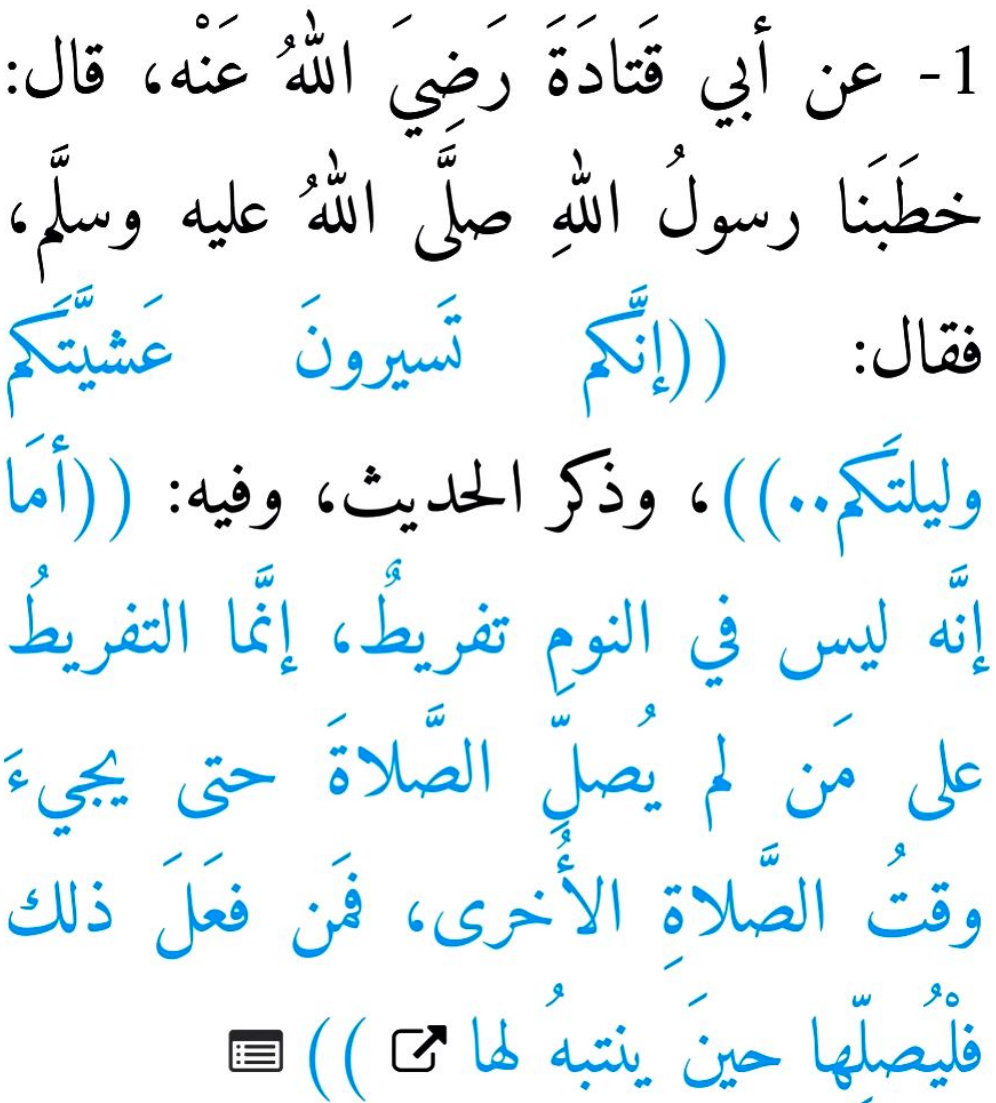 1- عن أبي قَتادَةَ رَضِيَ اللهُ عَنْه، قال:
خطَبَنا رسولُ اللهِ صلَّى اللهُ عليه وسلَّم،
فقال: ((إنَّكم تَسيرونَ عَشيَّتَكم
وليلتَكم..))، وذكر الحديث، وفيه: ((أمَا
إنَّه ليس في النومِ تفريطٌ، إنَّما التفريطُ
على مَن لم يُصلِّ الصَّلاةَ حتى يجيءَ
وقتُ الصَّلاةِ الأُخرى، فمَن فعَلَ ذلك
فلْيُصلِّها حينَ ينتبهُ لها ))